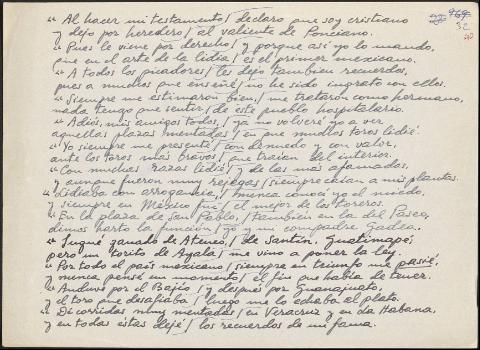 769
32
"Al hacer mi testamento / declaro que soy cristiano
y dejo por heredero / al valiente de Ponciano.
"Pues le viene por derecho / y porque así yo lo mando,
que en el arte de la lidia / es el primer mexicano.
"A todos los picadores / les dejo también recuerdos,
pues a muchos que enseñé / no he sido ingrato con ellos.
"Siempre me estimaron bien, / me trataron como hermano,
nada tengo que sentir / de este pueblo hospitalario.
"Adiós, mis amigos todos, / ya no volveré yo a ver
aquellas plazas mentadas / en que muchos toros lidié.
"Yo siempre me presenté / con denuedo y con valor,
ante los toros más bravos / que traían del interior.
"Con muchas razas lidié / y de las más afamadas,
y aunque fueron muy rejegas / siempre caían a mis plantas.
"Lidiaba con arrogancia, / nunca conocí yo el miedo,
y siempre en México fui / el mejor de los toreros.
"En la plaza de San Pablo, / también en la del Paseo,
dimos harto la función / yo y mi compadre Gadea.
"Jugué ganado de Ateneo, / de Santín, Guatimapé,
pero un torito de Ayala / me vino a poner la ley.
"Por todo el país mexicano / siempre en triunfo me pasié,
nunca pensé en momento / el fin que había de tener.
"Anduve por el Bajío / y después por Guanajuato,
y el toro que desafiaba / luego me lo echaba al plato.
"Di corridas muy mentadas / en Veracruz y en da Habana,
y en todas estas dejé / los recuerdos de mi fama.